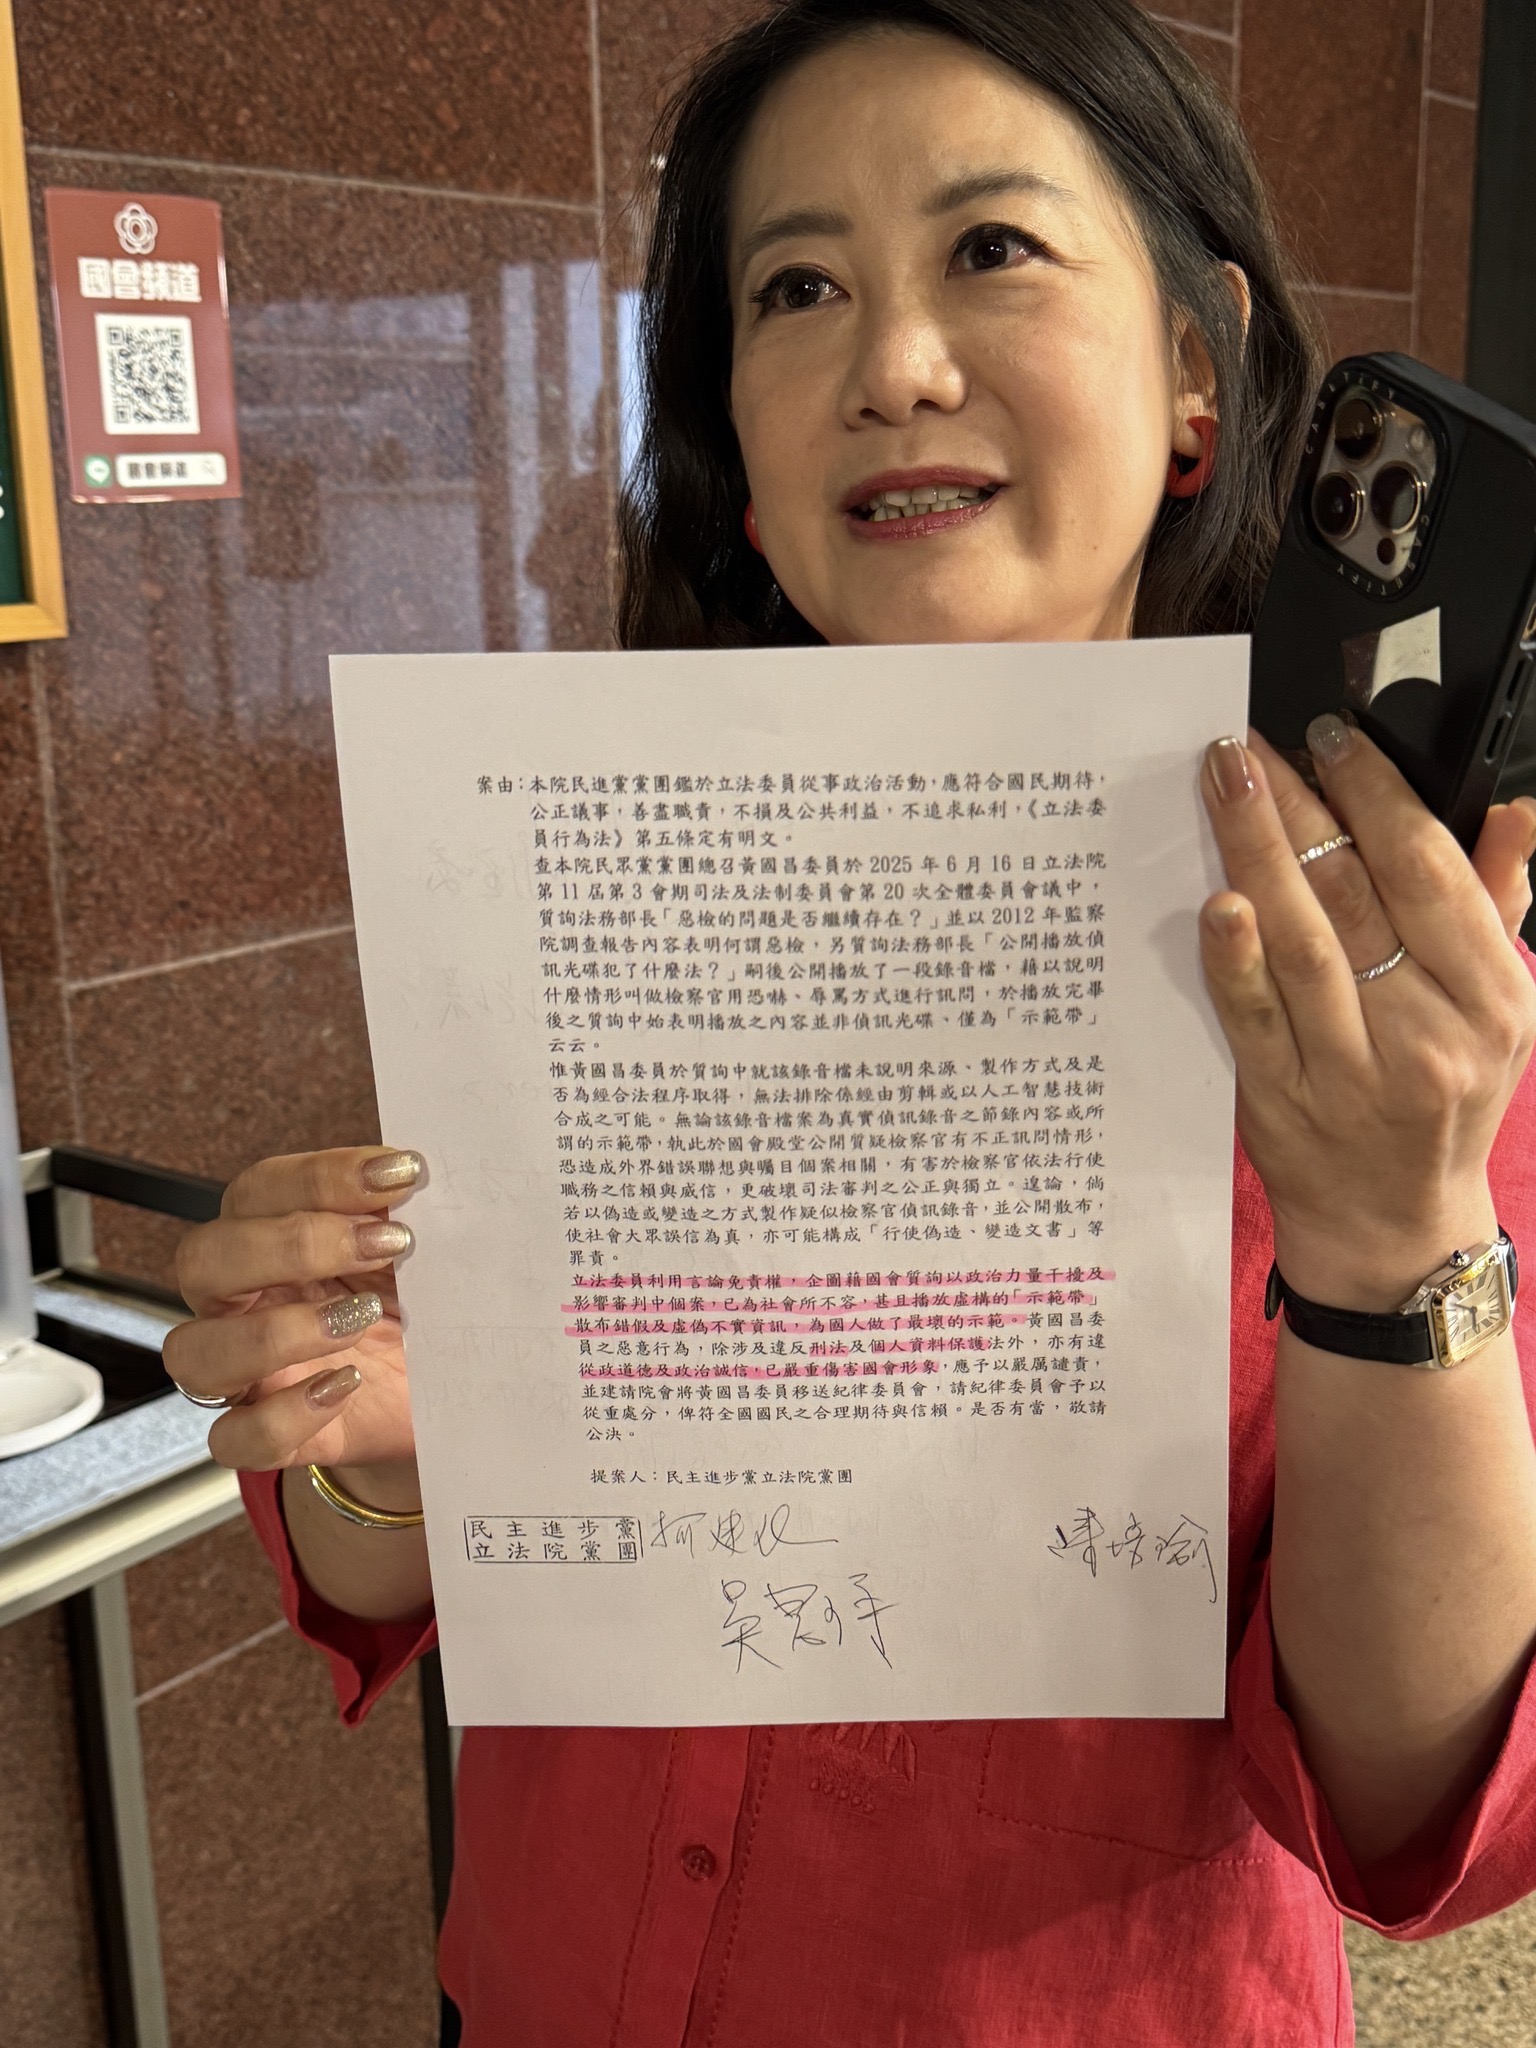 國會頻道
國會頻道
CASETIFY
CASETIFY
案由：本院民進黨黨團鑑於立法委員從事政治活動，應符合國民期待，
公正議事，善盡職責，不損及公共利益，不追求私利，《立法委
員行為法》第五條定有明文。
查本院民眾黨黨團總召黃國昌委員於 2025 年 6 月 16 日立法院
第 11 屆第 3 會期司法及法制委員會第 20 次全體委員會議中，
質詢法務部長「惡檢的問題是否繼續存在？」並以 2012 年監察
院調查報告內容表明何謂惡檢，另質詢法務部長「公開播放偵
訊光碟犯了什麼法？」嗣後公開播放了一段錄音檔，藉以說明
什麼情形叫做檢察官用恐嚇、辱罵方式進行訊問，於播放完畢
後之質詢中始表明播放之內容並非偵訊光碟、僅為「示範帶」
云云。
惟黃國昌委員於質詢中就該錄音檔未說明來源、製作方式及是
否為經合法程序取得，無法排除係經由剪輯或以人工智慧技術
合成之可能。無論該錄音檔案為真實偵訊錄音之節錄內容或所
謂的示範帶，執此於國會殿堂公開質疑檢察官有不正訊問情形，
恐造成外界錯誤聯想與矚目個案相關，有害於檢察官依法行使
職務之信賴與威信，更破壞司法審判之公正與獨立。遑論，倘
若以偽造或變造之方式製作疑似檢察官偵訊錄音，並公開散布，
使社會大眾誤信為真，亦可能構成「行使偽造、變造文書」等
罪責。
立法委員利用言論免責權，企圖藉國會質詢以政治力量干擾及
影響審判中個案，已為社會所不容，甚且播放虛構的「示範帶」
散布錯假及虛偽不實資訊，為國人做了最壞的示範。黃國昌委
員之惡意行為，除涉及違反刑法及個人資料保護法外，亦有違
從政道德及政治誠信，已嚴重傷害國會形象，應予以嚴厲譴責，
並建請院會將黃國昌委員移送紀律委員會，請紀律委員會予以
從重處分，俾符全國國民之合理期待與信賴。是否有當，敬請
公決。
提案人：民主進步黨立法院黨團
民主進步黨
立法院黨團
柯建銘
陳培瑜
吳思瑤